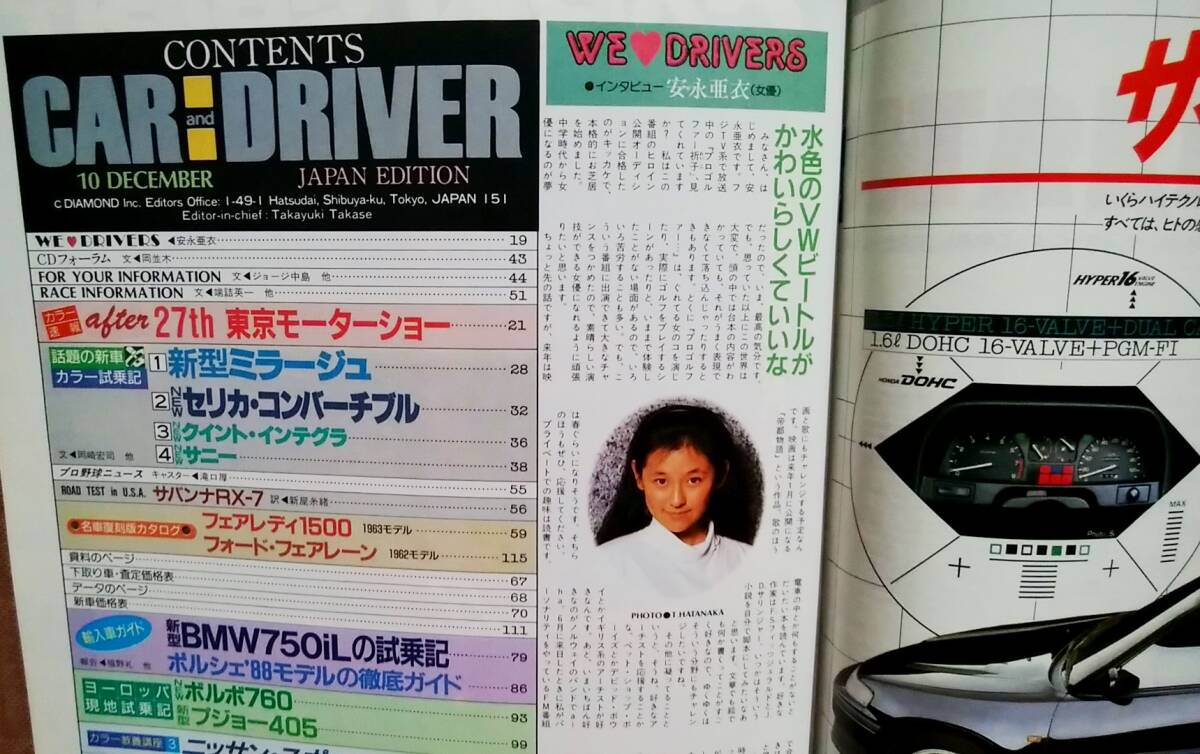 CONTENTS
CAR and DRIVER
10 DECEMBER JAPAN EDITION
C DIAMOND Inc. Editors Office: 1-49-1 Hatsudai, Shibuya-ku, Tokyo, JAPAN 151
Editor-in-chief: Takayuki Takase
WE♥DRIVERS ◀安永亜衣 19
CDフォーラム 文◀岡並木 43
FOR YOUR INFORMATION 文◀ジョージ中島 他 44
RACE INFORMATION 文◀端詰英一 他 51
カラー速報 after 27th 東京モーターショー 21
話題の新車
カラー試乗記
1 新型ミラージュ 28
2 NEW セリカ・コンバーチブル 32
3 NEW クイント・インテグラ 36
4 NEW サニー 38
文◀岡崎宏司 他
プロ野球ニュース キャスター◀滝口厚 55
ROAD TEST in U.S.A. サバンナRX-7 訳◀新屋糸緒 56
●名車復刻版カタログ●
フェアレディ1500 1963モデル 59
フォード・フェアレーン 1962モデル 115
資料のページ 67
下取り車・査定価格表 68
データのページ 70
新車価格表 111
輸入車ガイド
新型BMW750iLの試乗記 79
報告◀福野礼 他
ポルシェ'88モデルの徹底ガイド 86
ヨーロッパ
現地試乗記
NEW ボルボ760 93
新型 プジョー405 99
カラー教養講座 3
WE♥DRIVERS
●インタビュー 安永亜衣(女優)
水色のVWビートルが
かわいらしくていいな
みなさん、は
じめまして、安
永亜衣です。フ
ジTV系で放送
中の『プロゴル
ファー祈子』見
てくれています
か？私はこの
番組のヒロイン
公開オーディシ
ョンに合格した
のがキッカケで、
本格的にお芝居
を始めました。
中学時代から女
優になるのが夢
だったので、いま、最高の気分です。
でも、思っていた以上にこの世界は
大変で、頭の中では台本の内容がわ
かっていても、それがうまく表現で
きなくて落ち込んじゃったりすると
きもあります。とくに『プロゴルフ
ァー…』は、ぐれてる女のコを演じ
たり、実際にゴルフをプレイするシ
ーンがあったりと、いままで体験し
たことがない場面があるので、いろ
いろ苦労することも多い。でも、こ
ういう番組に出演できて大きなチャ
ンスをつかめたので、素晴らしい演
技ができる女優になれるように頑張
りたいと思います。
ちょっと先の話ですが、来年は映
画と歌にもチャレンジする予定なん
です。映画は来年1月に公開になる
『帝都物語』という作品。歌のほう
は春ぐらいになりそうです。そちら
のほうもぜひ、応援してください。
プライベートでの趣味は読書です。
PHOTO●T.HATANAKA
いくらハイテク
すべては、ヒトの
HYPER 16 VALVE ENGINE
HYPER 16-VALVE+DUAL C
1.6ℓ DOHC 16-VALVE+PGM-FI
HONDA DOHC
MAX